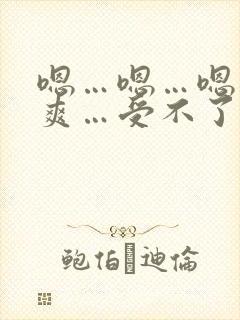 嗯…嗯…嗯
爽…受不了
鲍伯 迪倫